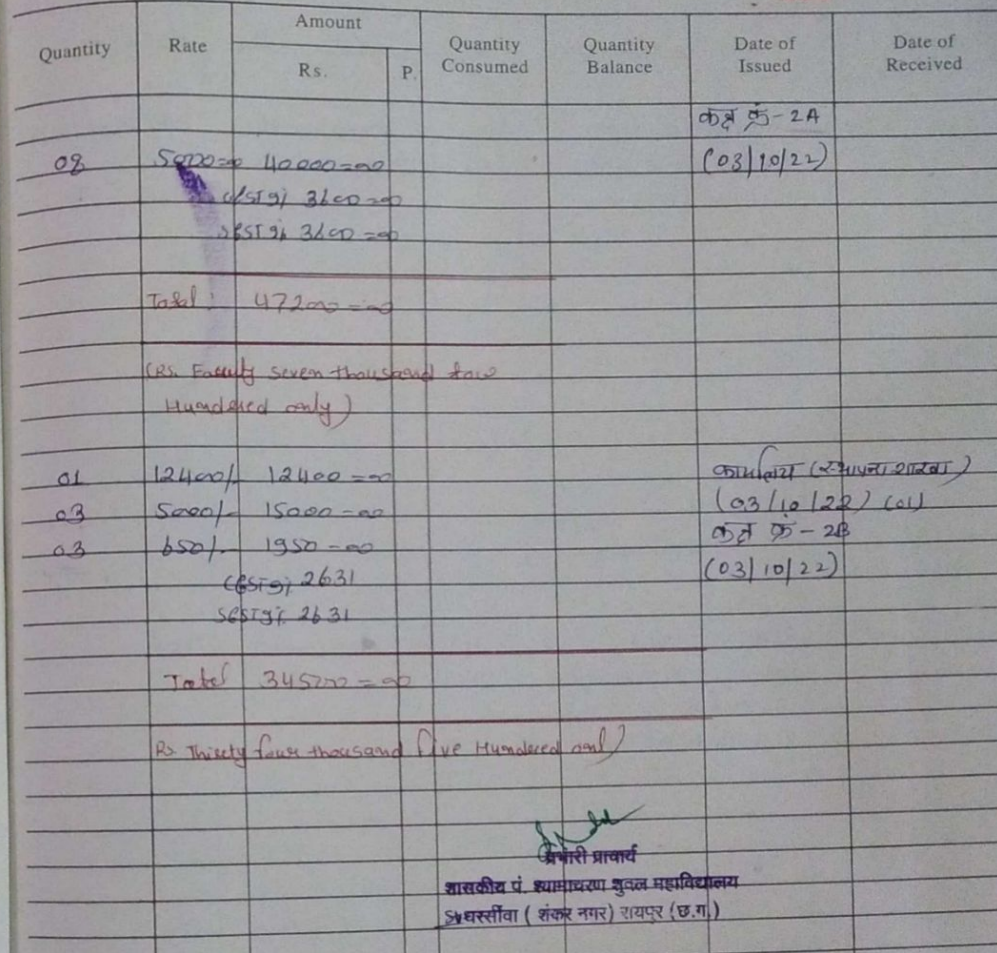 Quantity Rate Amount Quantity Consumed Quantity Balance Date of Issued Date of Received
Rs. P.
कक्ष क्रं - 2A
08 5000=00 40000=00 (03/10/22)
CGST 9% 3600=00
SGST 9% 3600=00
Total: 47200=00
(Rs. Fourty seven thousand two
Hundered only)
01 12400/- 12400=00 कार्यालय (स्थापना शाखा)
03 5000/- 15000-00 (03/10/22) (01)
03 650/- 1950-00 कक्ष क्रं - 2B
CGST 9% 2631 (03/10/22)
SGST 9% 2631
Total 34500=00
Rs. Thirty four thousand five Hundered only)
प्रभारी प्राचार्य
शासकीय पं. श्यामाचरण शुक्ल महाविद्यालय
धरसींवा ( शंकर नगर) रायपुर (छ.ग.)